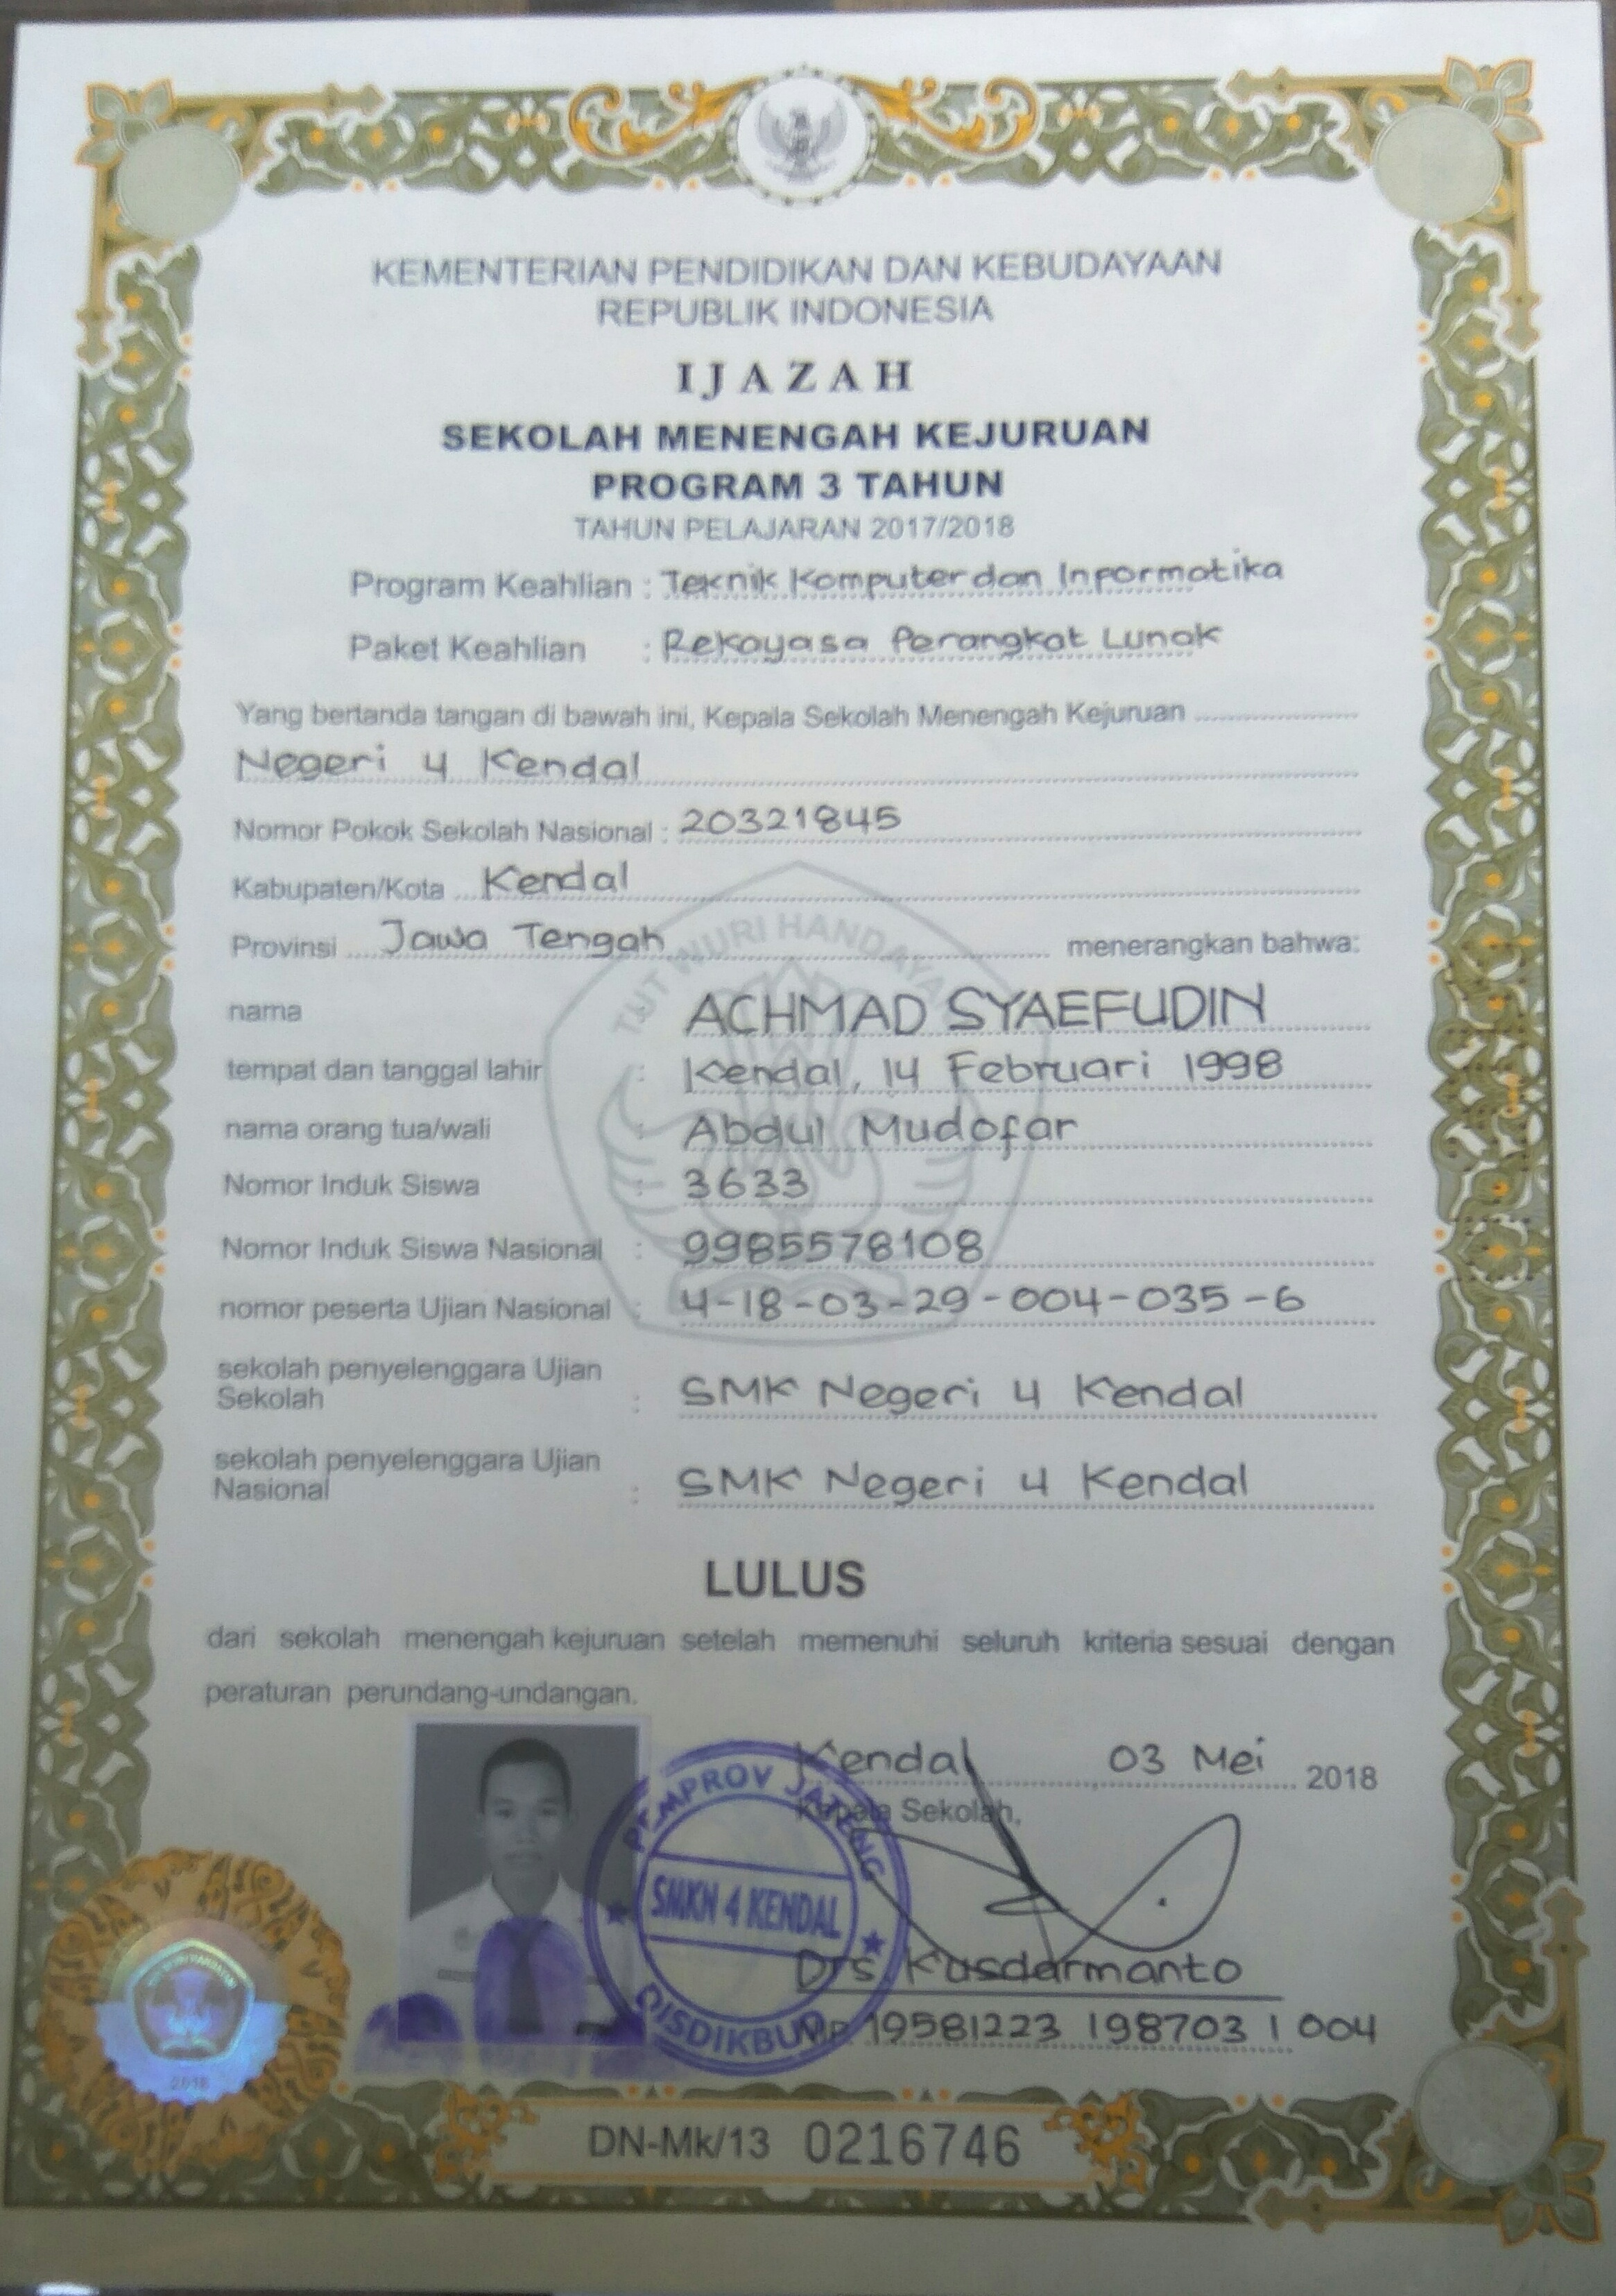 KEMENTERIAN PENDIDIKAN DAN KEBUDAYAAN
REPUBLIK INDONESIA
IJAZAH
SEKOLAH MENENGAH KEJURUAN
PROGRAM 3 TAHUN
TAHUN PELAJARAN 2017/2018
Program Keahlian : Teknik Komputer dan Informatika
Paket Keahlian : Rekayasa Perangkat Lunak
Yang bertanda tangan di bawah ini, Kepala Sekolah Menengah Kejuruan
Negeri 4 Kendal
Nomor Pokok Sekolah Nasional : 20321845
Kabupaten/Kota Kendal
Provinsi Jawa Tengah menerangkan bahwa:
TUT WURI HANDAYANI
nama ACHMAD SYAEFUDIN
tempat dan tanggal lahir : Kendal, 14 Februari 1998
nama orang tua/wali : Abdul Mudofar
Nomor Induk Siswa : 3633
Nomor Induk Siswa Nasional : 9985578108
nomor peserta Ujian Nasional : 4-18-03-29-004-035-6
sekolah penyelenggara Ujian
Sekolah : SMK Negeri 4 Kendal
sekolah penyelenggara Ujian
Nasional : SMK Negeri 4 Kendal
LULUS
dari sekolah menengah kejuruan setelah memenuhi seluruh kriteria sesuai dengan
peraturan perundang-undangan.
Kendal, 03 Mei 2018
Kepala Sekolah,
PEMPROV JATENG
SMKN 4 KENDAL
DISDIKBUD
Drs. Kusdarmanto
NIP 19581223 198703 1 004
2018
DN-Mk/13 0216746